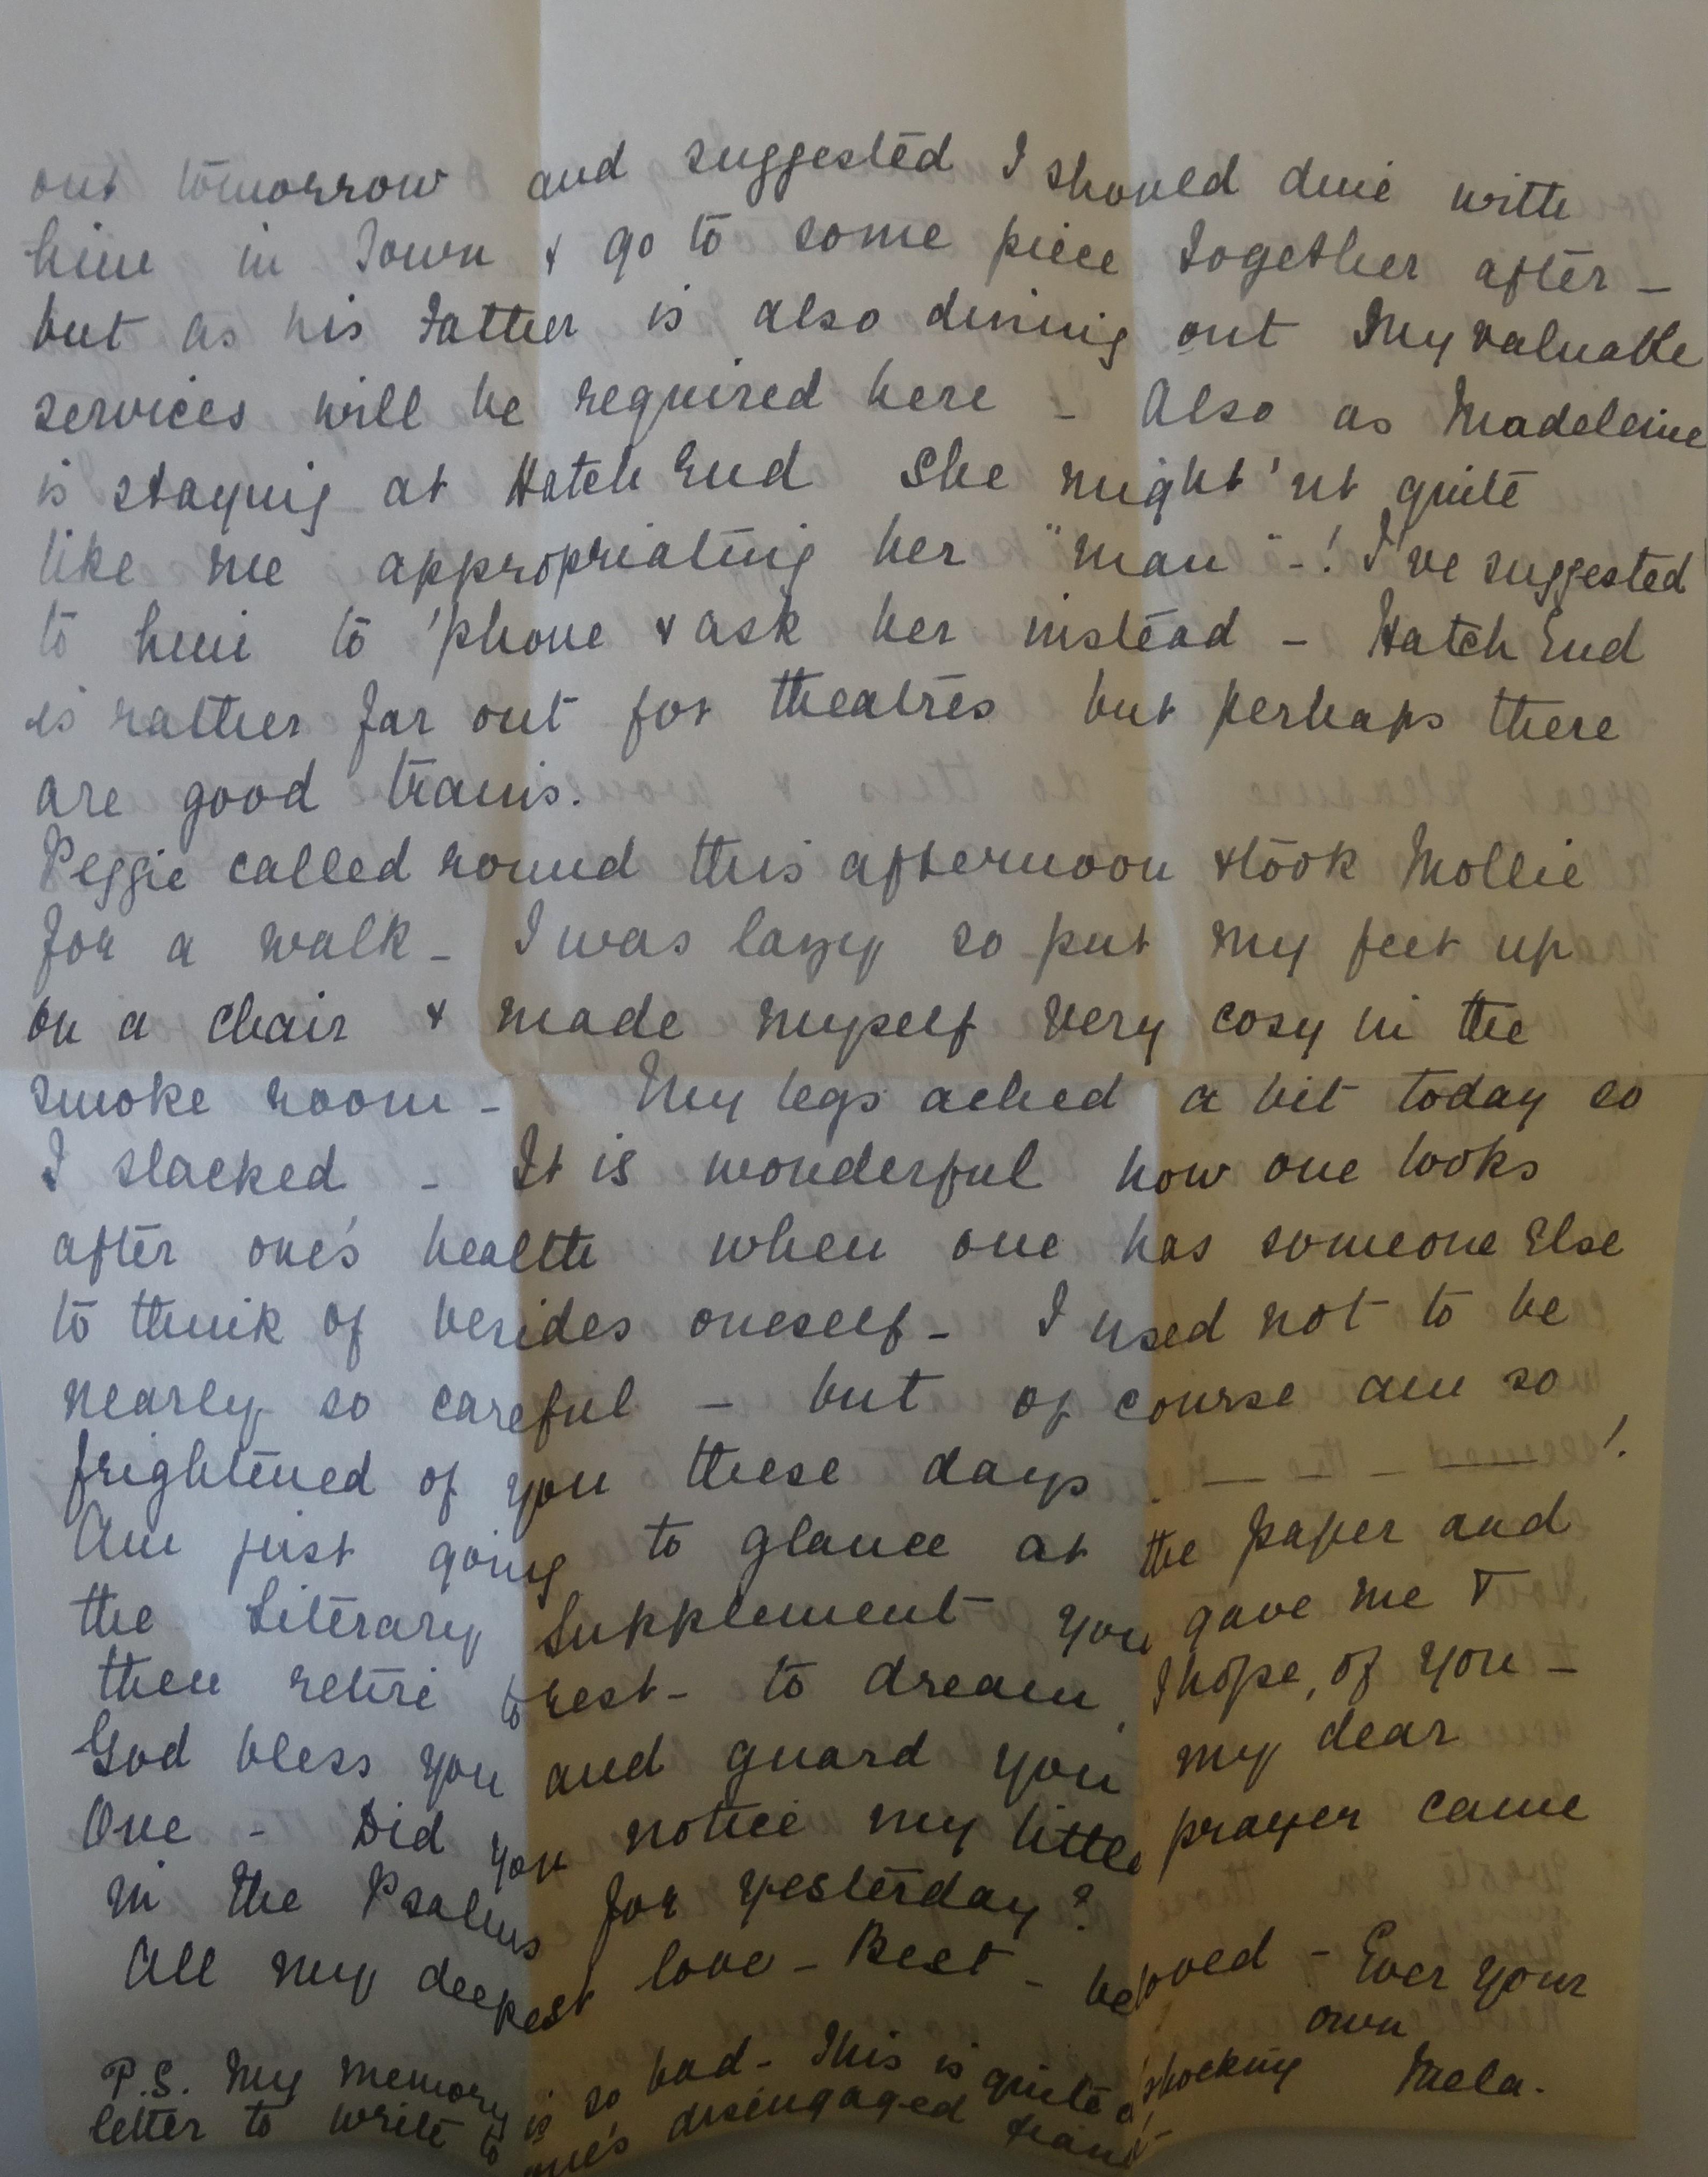 out tomorrow and suggested I should dine with
him in Town & go to some piece together after -
but as his Father is also dining out my valuable
services will be required here - Also as Madeleine
is staying at Hatch End she might'nt quite
like me appropriating her "man" - ! I've suggested
to him to 'phone & ask her instead - Hatch End
is rather far out for theatres but perhaps there
are good trains.
Peggie called round this afternoon & took Mollie
for a walk - I was lazy so put my feet up
on a chair & made myself very cosy in the
smoke room - My legs ached a bit today so
I slacked - It is wonderful how one looks
after one's health when one has someone else
to think of besides oneself - I used not to be
nearly so careful - but of course am so
frightened of you these days . — - - — !
Am just going to glance at the paper and
the Literary Supplement you gave me &
then retire to rest - to dream, I hope, of you -
God bless you and guard you my dear
One - Did you notice my little prayer came
in the Psalms for yesterday?
All my deepest love - Best - beloved - Ever your
own
Mela.
P.S. My memory is so bad - This is quite a shocking
letter to write to one's disengaged fiancé!